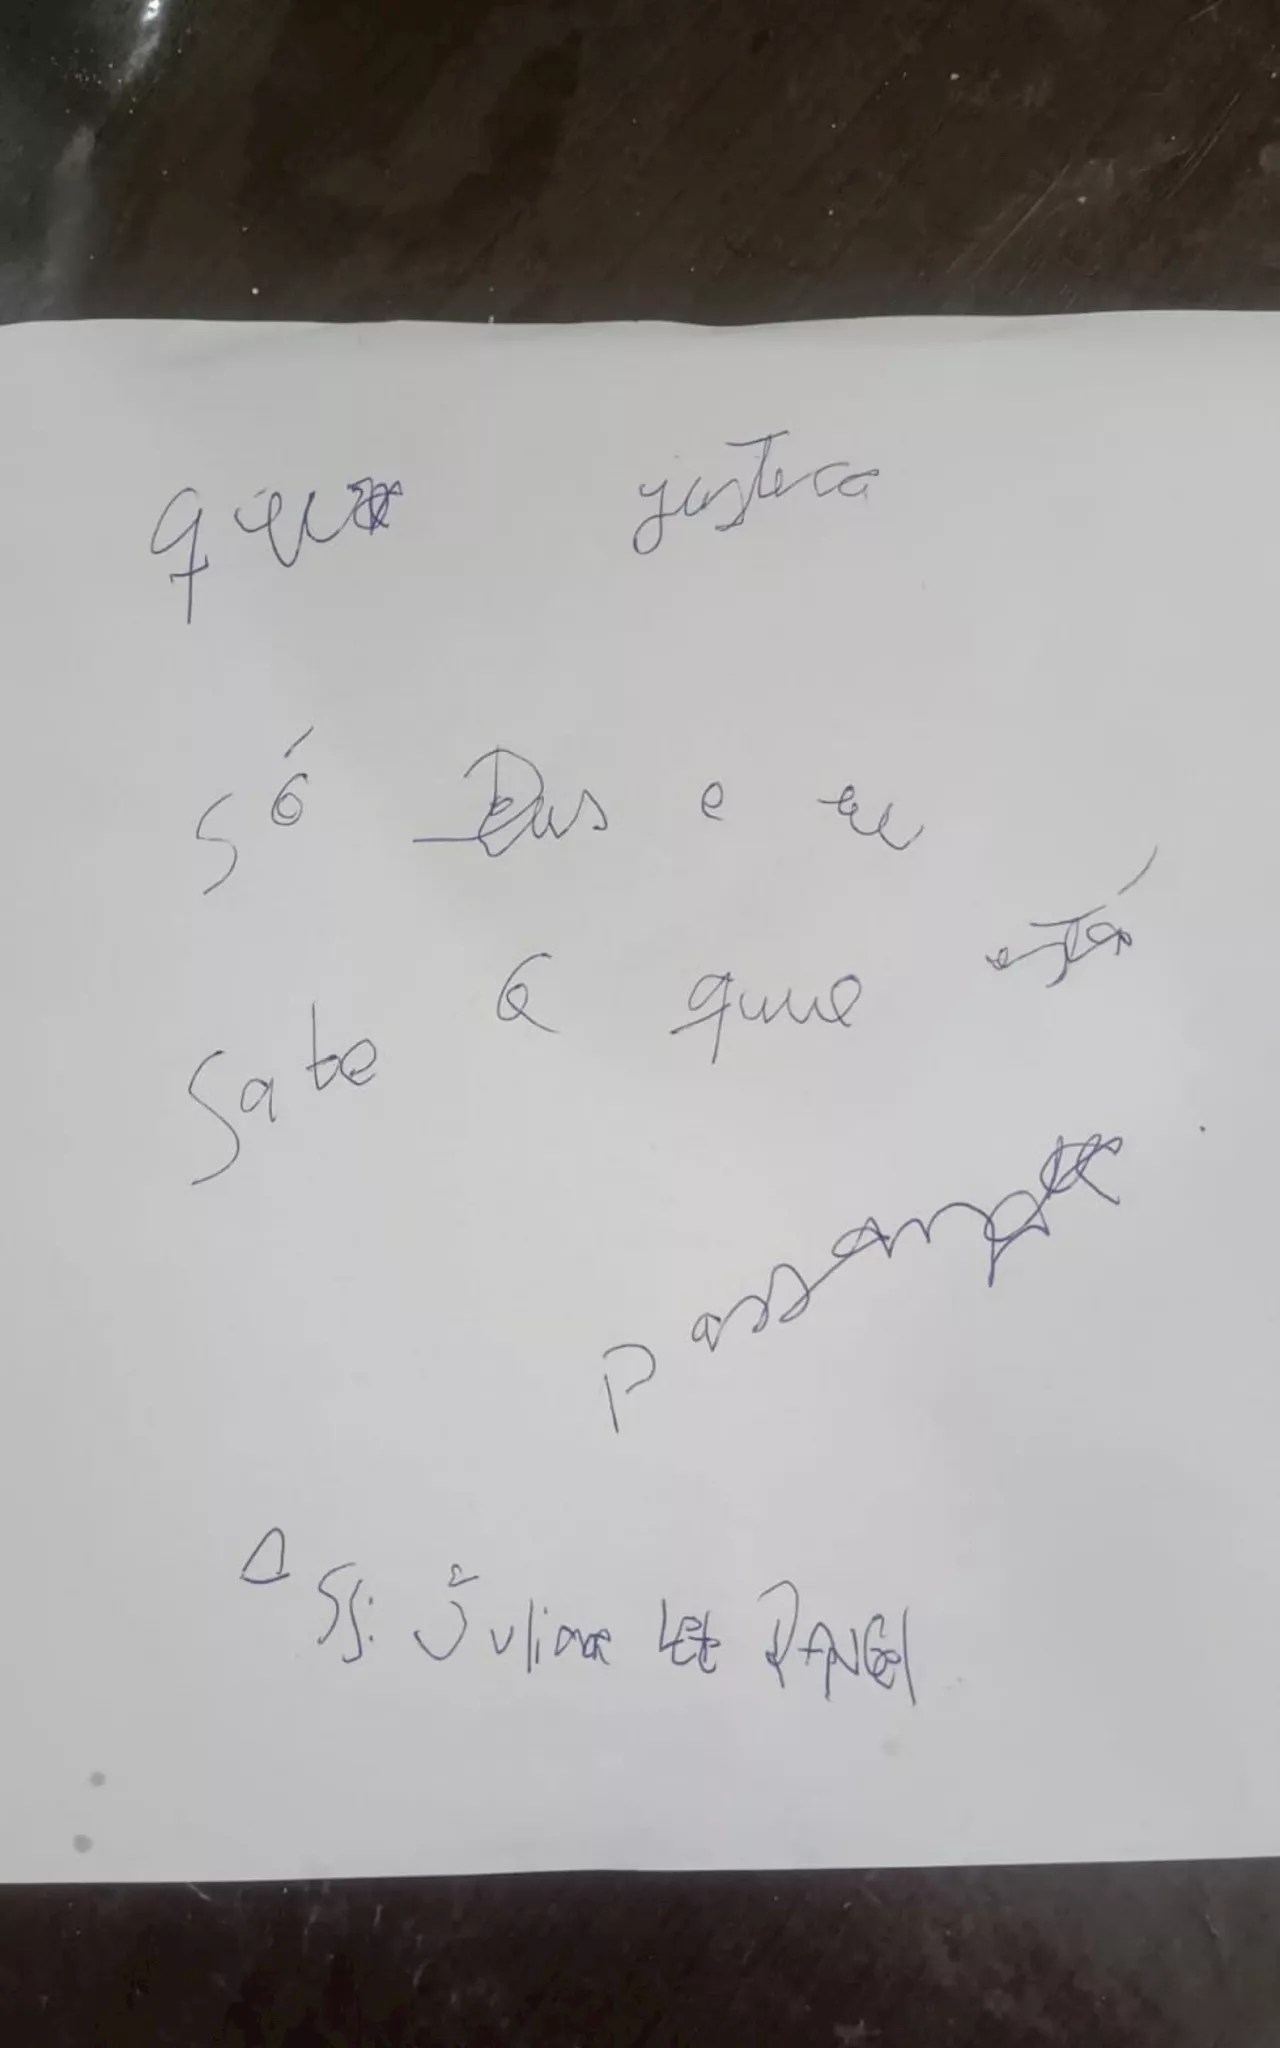 quero justica
Só Deus e eu
sabe o que está
passando
Ass: Juliane Let RANGEl